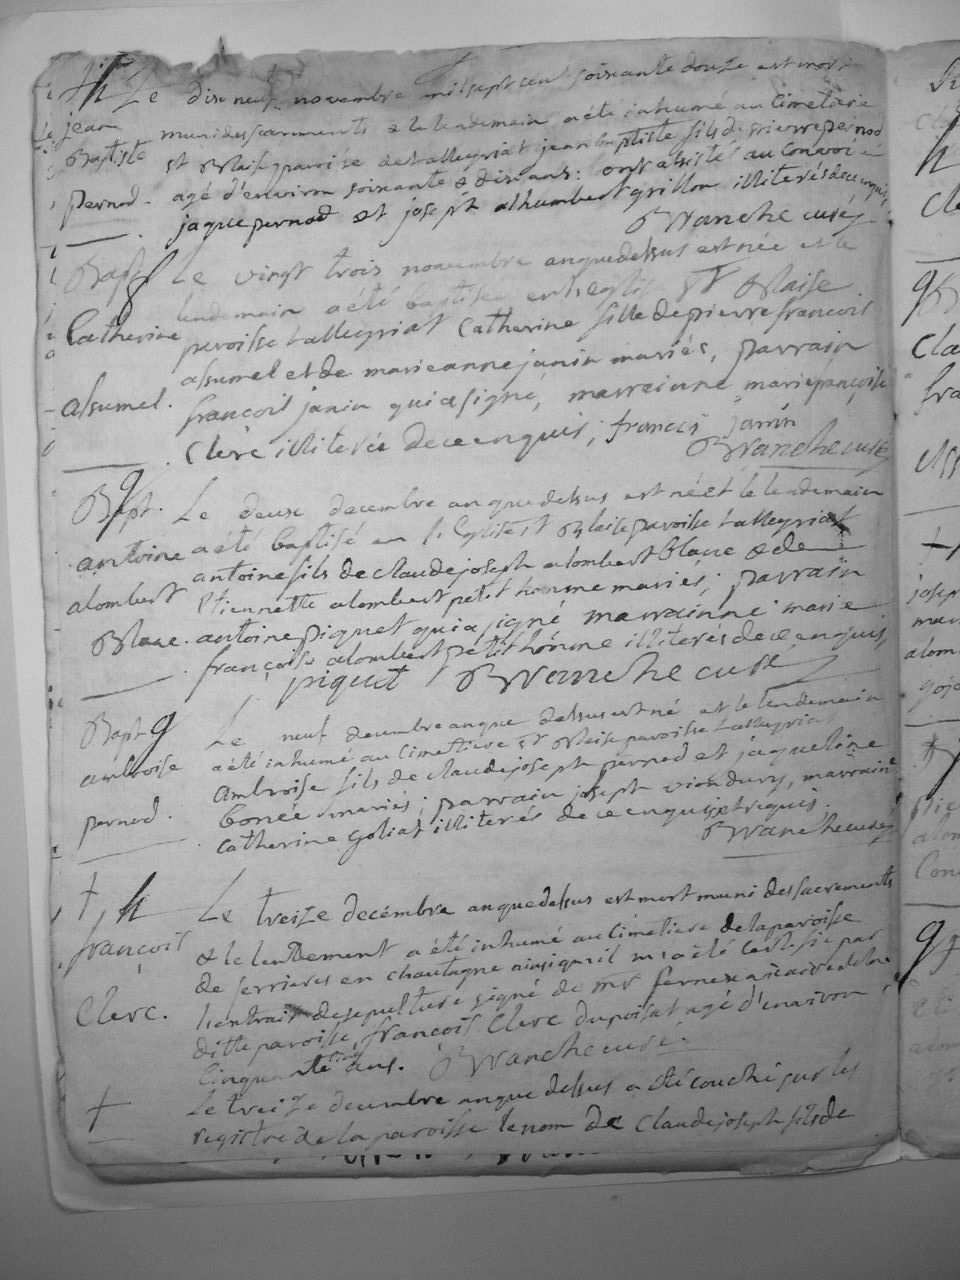 † h Le dix neuf novembre mil sept cent soixante douze est mort
jean muni des sacrements & le lendemain a été inhumé au Cimetiere
Baptiste st Blaise paroisse de tallyriat jean baptiste fils de pierre pernod
pernod. agé d'environ soixante & dix ans: ont assisté au Convoi
jaque pernod et joseph alhumbert grillon illiterés de ce enquis,
Branche curé
Bapt g Le vingt trois novembre anquedessus est née et le
lendemain a été baptisée en l'eglise st Blaise
Catherine paroisse tallyriat Catherine fille de pierre françois
assumel et de marieanne janin mariés, parrain
assumel. françois janin qui a signé, marrainne marie françoise
Clerc illiterée de ce enquis; francois janin
Branche curé
Bapt. g Le deux decembre anquedessus est né et le lendemain
antoine a été baptisé en l'Eglise st Blaise paroisse tallyriat
antoine fils de claude joseph alombert blanc & de
alombert Etiennette alombert petit homme mariés; parrain
Blanc. antoine piquet qui a signé marrainne marie
françoise alombert petit homme illiterés de ce enquis,
piquet Branche curé
Bapt g Le neuf decembre anque dessus est né et le lendemain
ambroise a été inhumé au Cimetiere st Blaise paroisse tallyriat
ambroise fils de claude joseph pernod et jaqueline
pernod. bonée mariés; parrain joseph viondury, marrainne
Catherine Goliat illiterés de ce enquis et requis.
Branche curé
† h Le treize decémbre anquedessus est mort muni des sacrements
françois & le lendement a été inhumé au Cimetiere de la paroisse
de serrieres en chautagne ainsi qu'il m'a été Certifié par
Clerc. l'entrait de sepulture signé de mr fernex vicaire de la
ditte paroisse, françois Clerc du poisat agé d'environ
Cinquante cinq ans. Branche curé.
† Le treize decembre anque dessus a été couché sur les
registre de la paroisse le nom de Claude joseph fils de